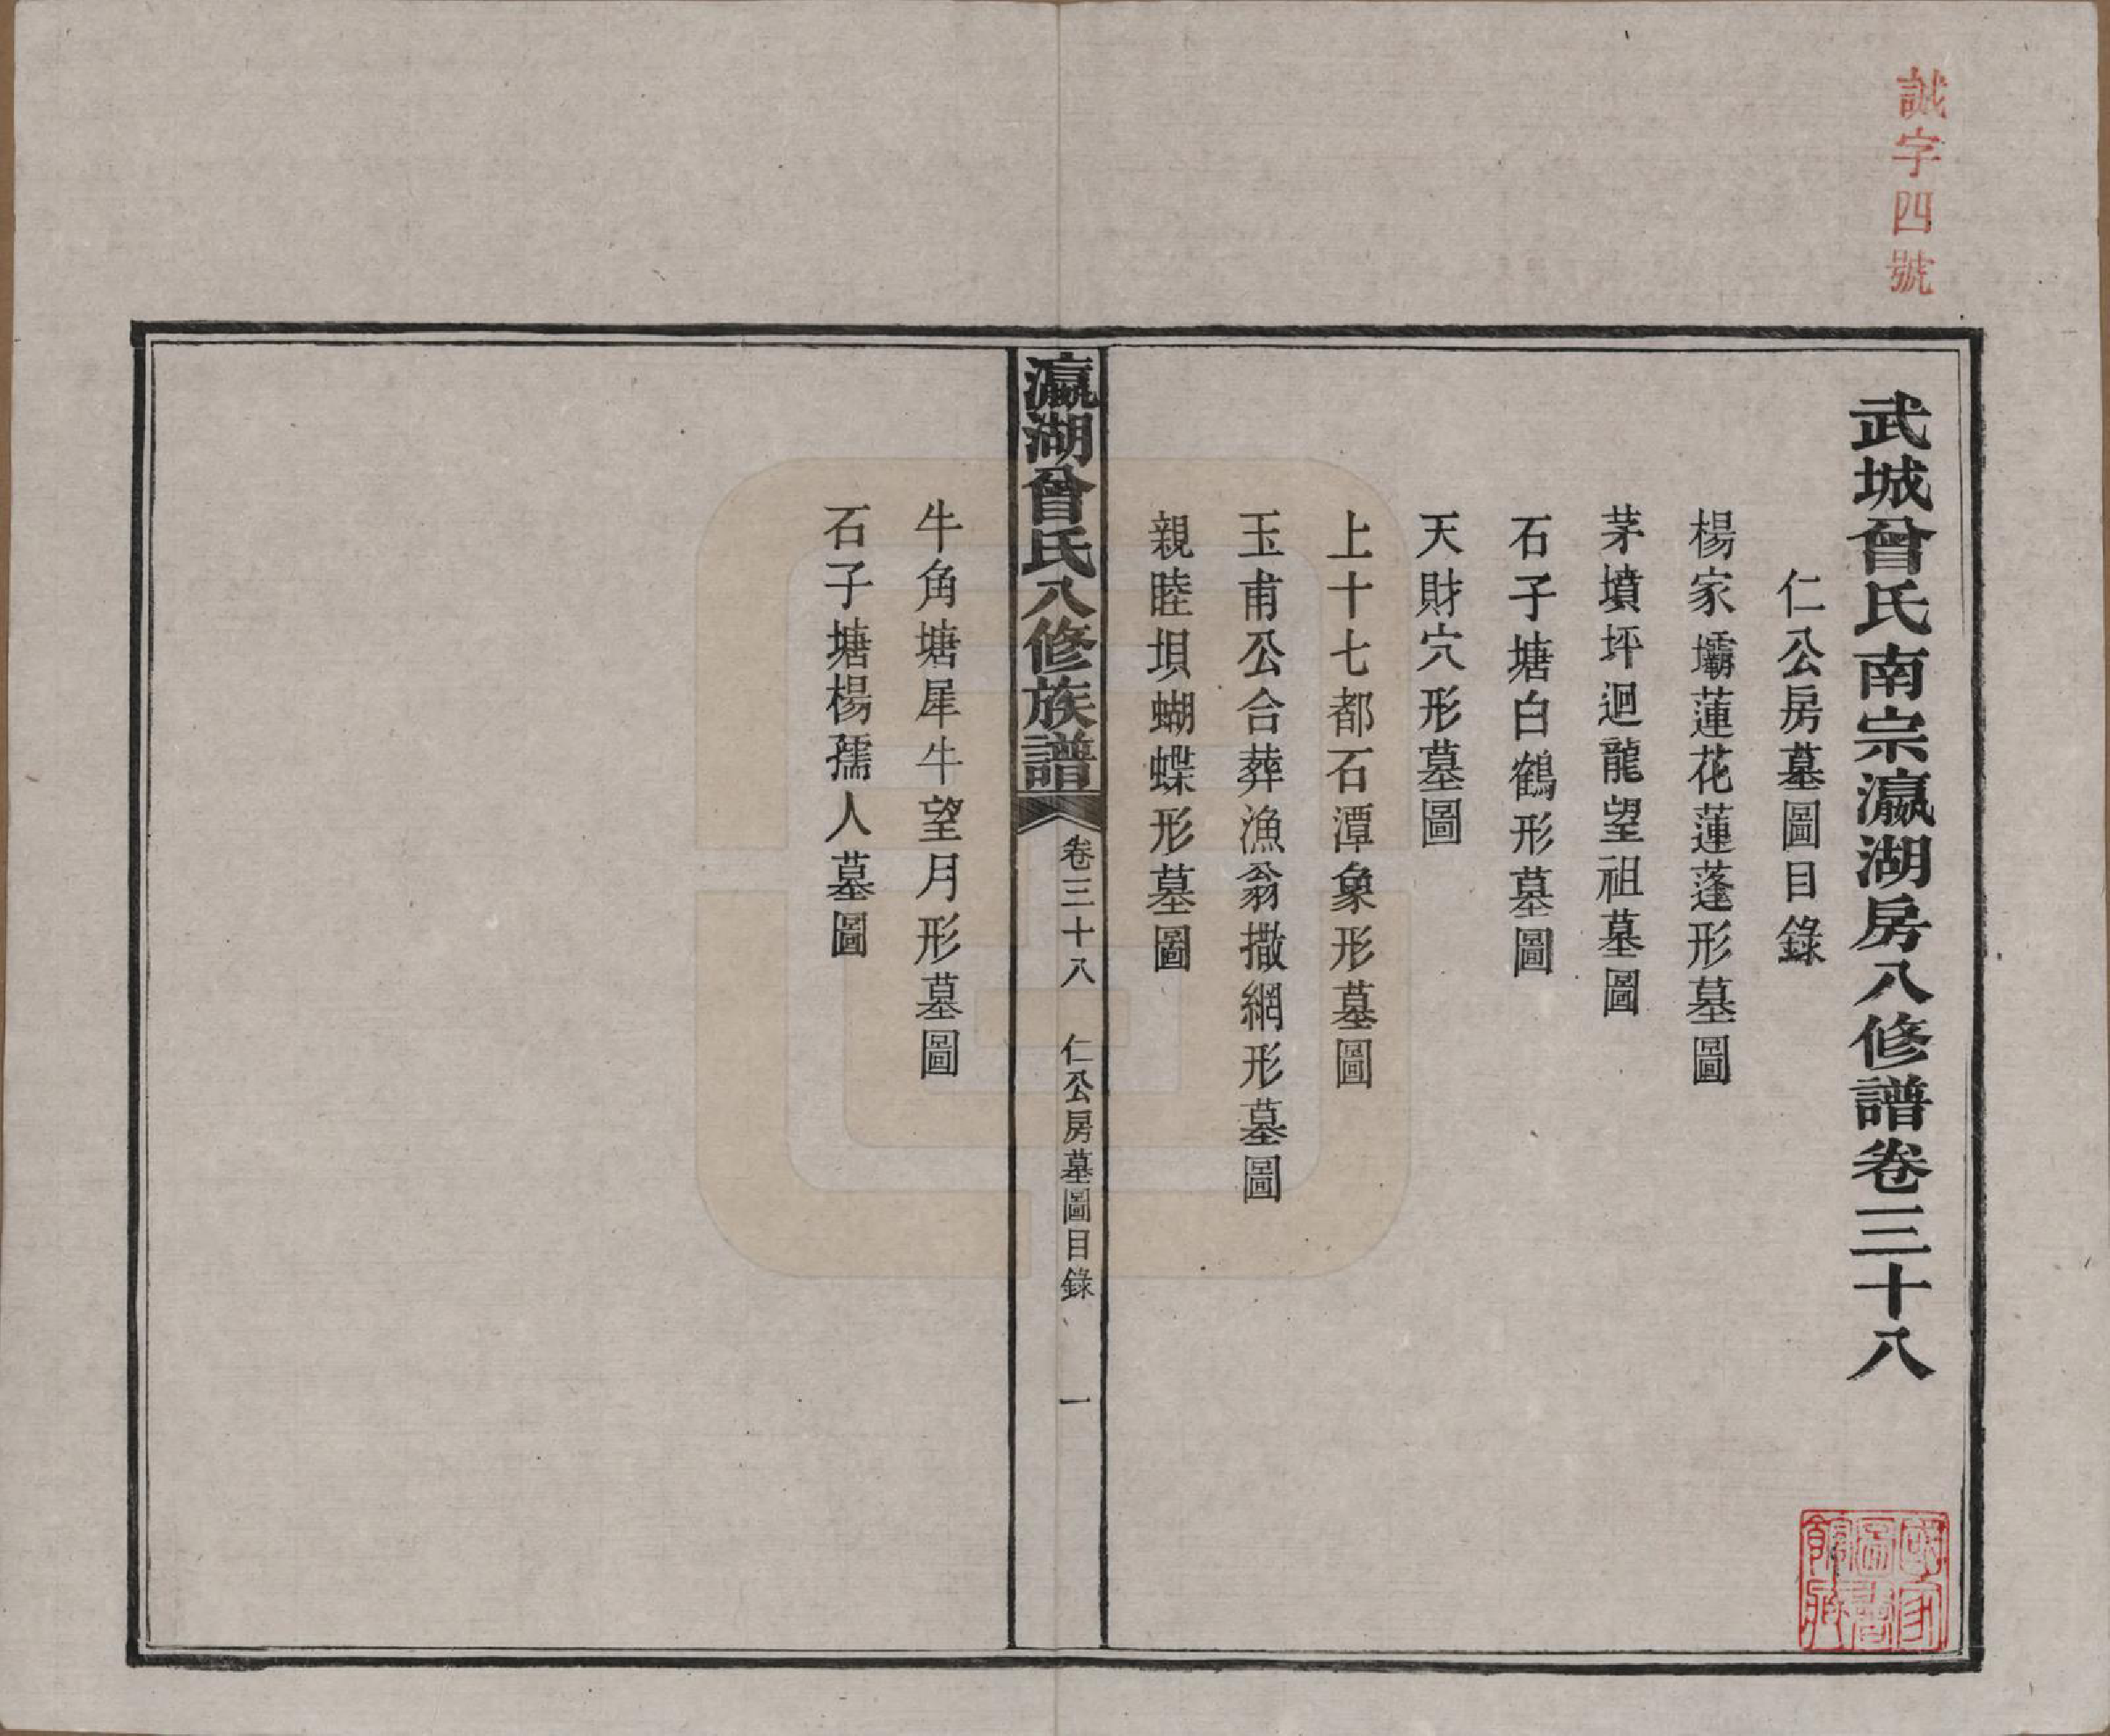 誠字四號
武城曾氏南宗瀛湖房八修譜卷三十八
仁公房墓圖目錄
楊家壩蓮花蓮蓬形墓圖
茅墳坪迴龍望祖墓圖
石子塘白鶴形墓圖
天財穴形墓圖
上十七都石潭象形墓圖
玉甫公合葬漁翁撒網形墓圖
親睦垻蝴蝶形墓圖
瀛湖曾氏八修族譜
卷三十八
仁公房墓圖目錄
一
牛角塘犀牛望月形墓圖
石子塘楊孺人墓圖
國家圖書館藏